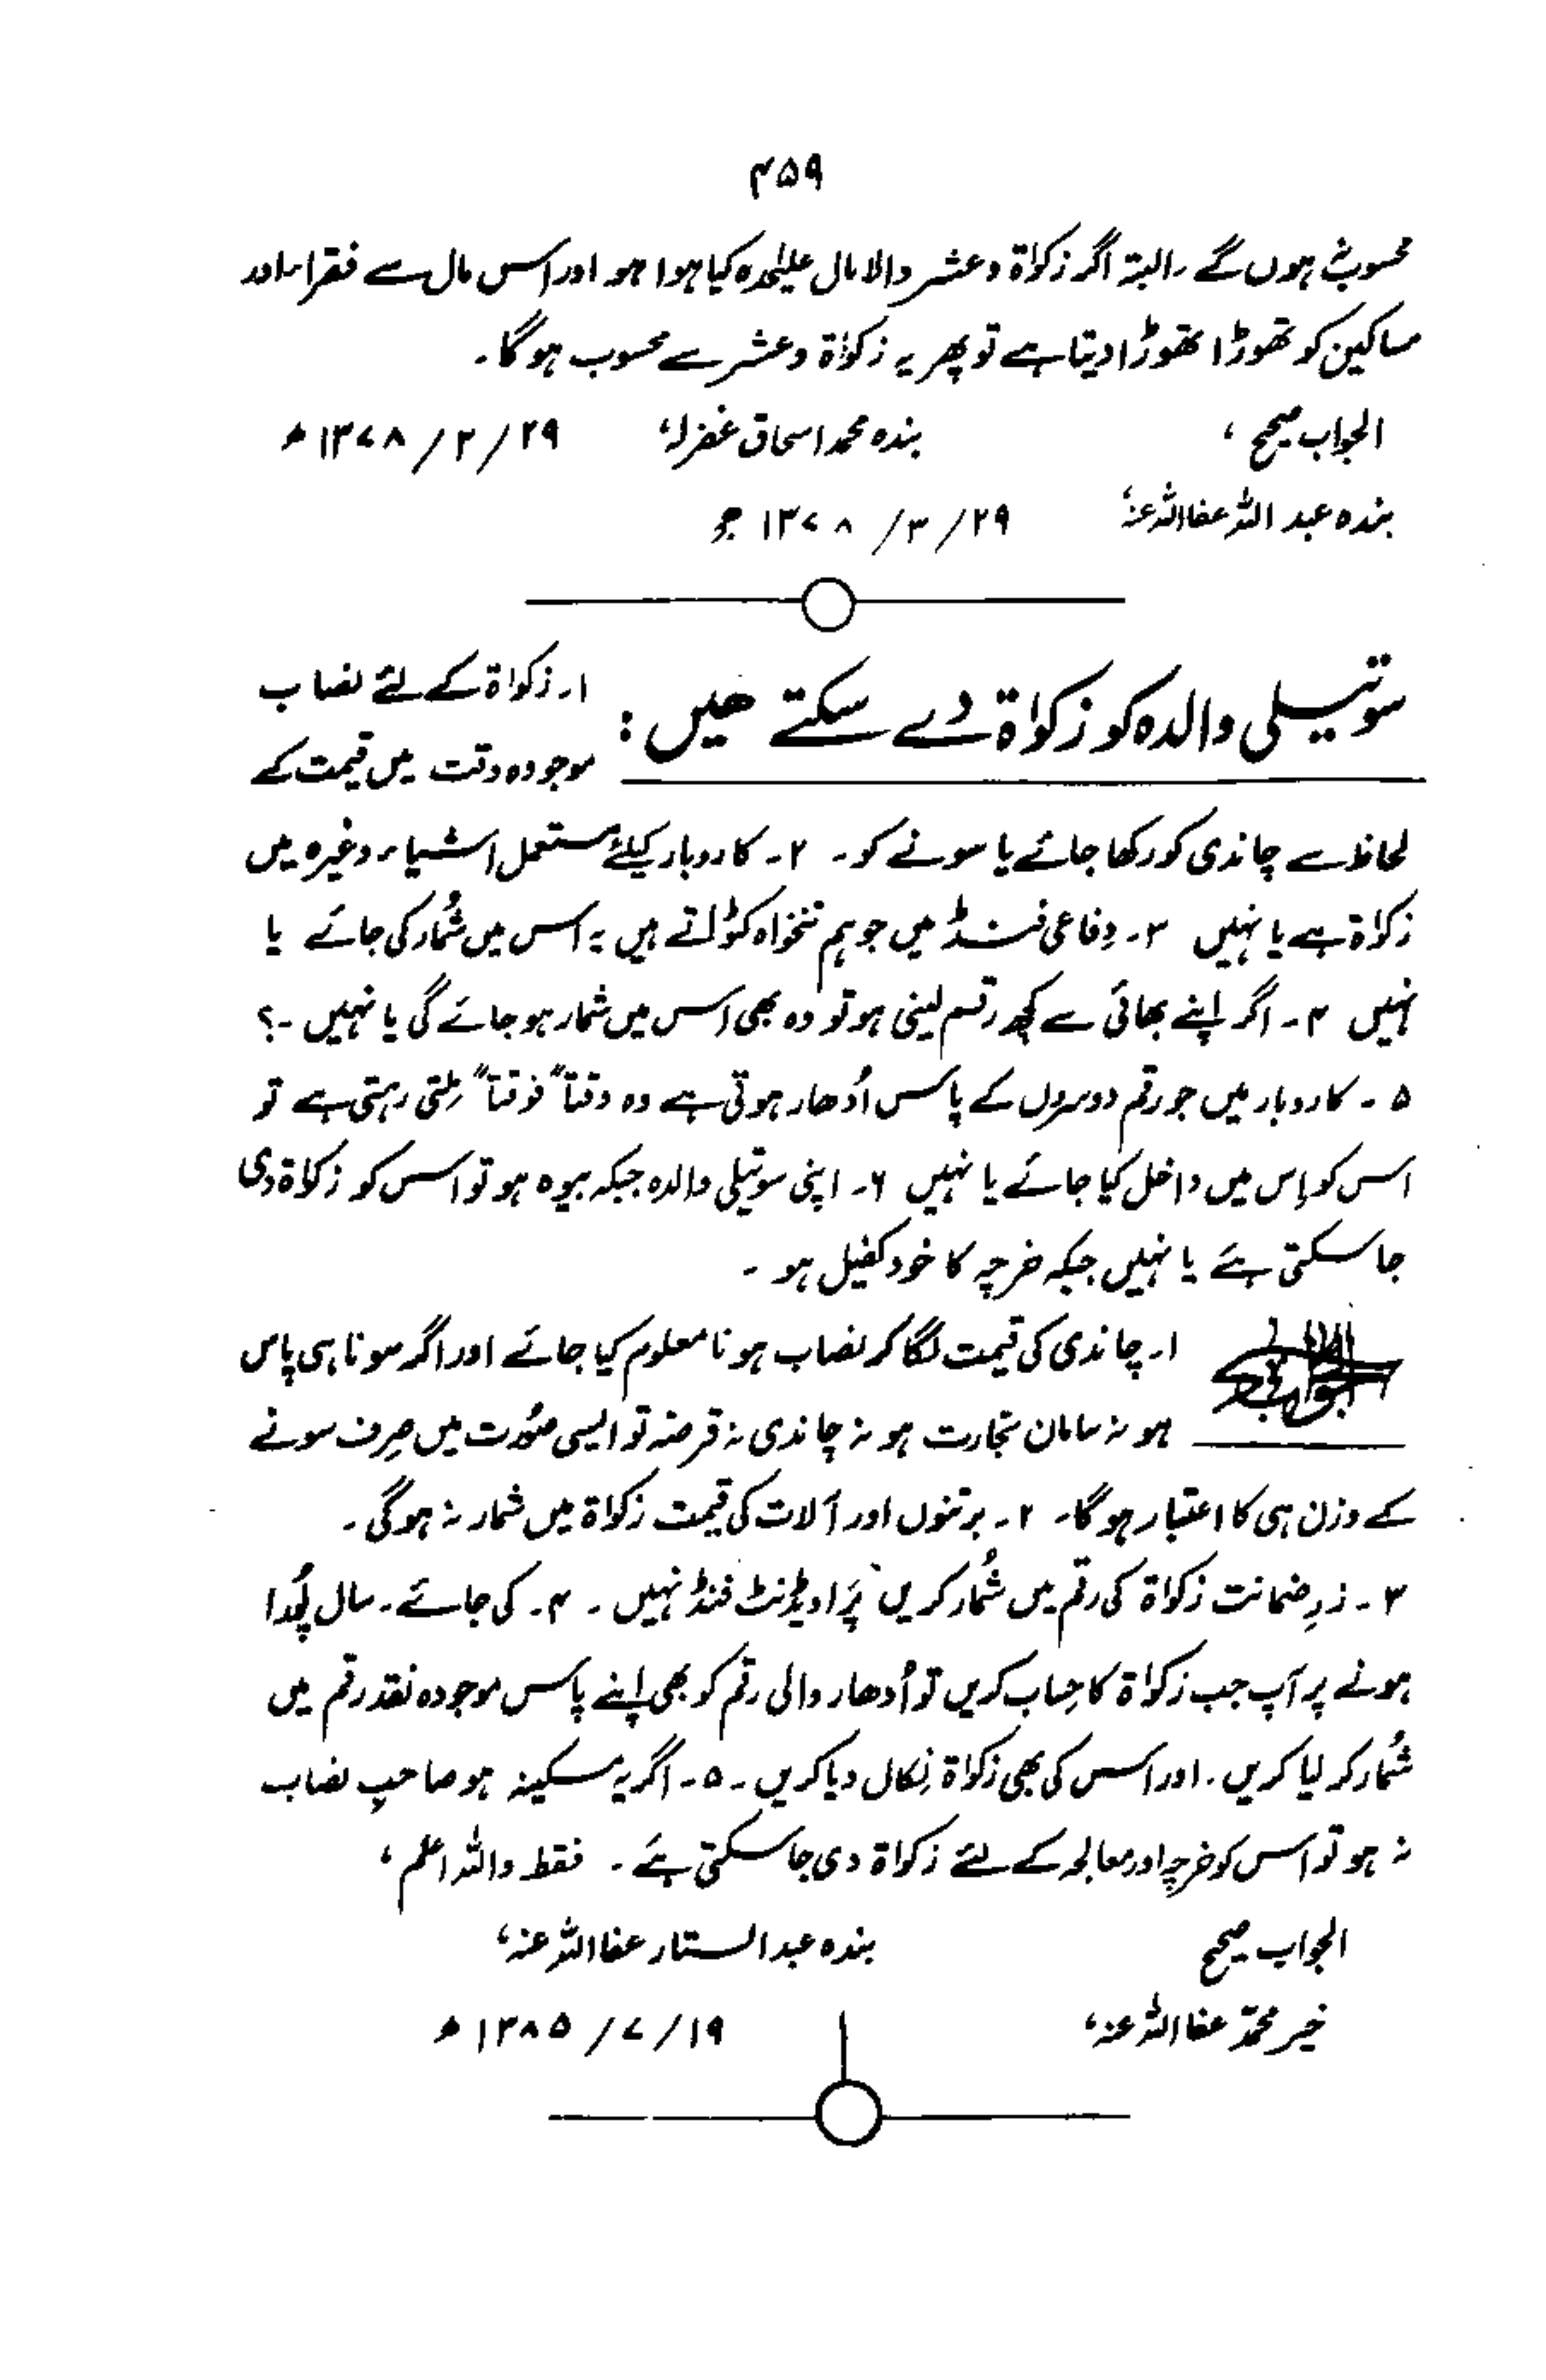 ۴۵۹
محسوب نہ ہوں گے ۔ البتہ اگر زکوٰۃ و عشر والا مال علیٰحدہ کیا ہوا ہو اور اس مال سے فقراء اور
مساکین کو تھوڑا تھوڑا دیتا ہے تو پھر یہ زکوٰۃ و عشر سے محسوب ہو گا۔
الجواب صحیح ، بندہ محمد اسحاق غفرلہٗ ۲۹ / ۲ / ۱۳۷۸ ھ
بندہ عبد اللہ عفا اللہ عنہٗ ۲۹ / ۳ / ۱۳۷۸ ھ
سوتیلی والدہ کو زکواۃ دے سکتے ھیں : ۱۔ زکواۃ کے لئے نصاب
موجودہ وقت میں قیمت کے
لحاظ سے چاندی کو رکھا جائے یا سونے کو۔ ۲۔ کاروبار کیلئے مستعمل اشیاء وغیرہ میں
زکواۃ ہے یا نہیں ۳۔ دِفاعی فنڈ میں جو ہم تنخواہ کٹواتے ہیں یہ اس میں شُمار کی جائے یا
نہیں ۴۔ اگر اپنے بھائی سے کچھ رقم لینی ہو تو وہ بھی اس میں شمار ہو جائے گی یا نہیں ۔؟
۵ ۔ کاروبار میں جو رقم دوسروں کے پاس اُدھار ہوتی ہے وہ وقتاً فوقتاً مِلتی رہتی ہے تو
اس کو اِس میں داخل کیا جائے یا نہیں ۶۔ اپنی سوتیلی والدہ جبکہ بیوہ ہو تو اس کو زکواۃ دی
جا سکتی ہے یا نہیں جبکہ خرچہ کا خود کفیل ہو ۔
الجواب ۱۔ چاندی کی قیمت لگا کر نصاب ہونا معلوم کیا جائے اور اگر سونا ہی پاس
ہو نہ سامان تجارت ہو نہ چاندی نہ قرضہ تو ایسی صُورت میں صِرف سونے
کے وزن ہی کا اعتبار ہو گا۔ ۲۔ برتنوں اور آلات کی قیمت زکواۃ میں شمار نہ ہو گی ۔
۳ ۔ زرِ ضمانت زکواۃ کی رقم میں شُمار کریں پراویڈنٹ فنڈ نہیں ۔ ۴۔ کی جائے ۔ سال پُورا
ہونے پر آپ جب زکواۃ کا حِساب کریں تو اُدھار والی رقم کو بھی اپنے پاس موجودہ نقد رقم میں
شُمار کر لیا کریں ۔ اور اس کی بھی زکواۃ نِکال دیا کریں ۔ ۵۔ اگر یہ مسکینہ ہو صاحبِ نصاب
نہ ہو تو اس کو خرچہ اور معالجہ کے لئے زکواۃ دی جا سکتی ہے ۔ فقط واللہ اعلم ،
الجواب صحیح بندہ عبد الستار عفا اللہ عنہ ،
خیر محمدؐ عفا اللہ عنہ ، ۱۹ / ۷ / ۱۳۸۵ ھ